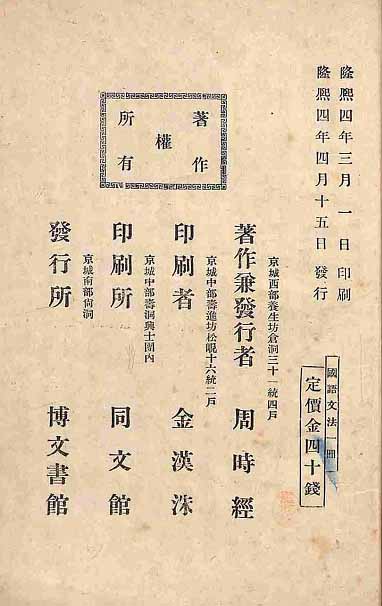 隆熙四年三月一日印刷
隆熙四年四月十五日發行
國語文法一冊
定價金四十錢
著作
權
所有
京城西部養生坊倉洞三十一統四戶
著作兼發行者 周時經
京城中部壽進坊松峴十六統二戶
印刷者 金漢洙
京城中部壽洞興士團內
印刷所 同文館
京城南部尙洞
發行所 博文書館